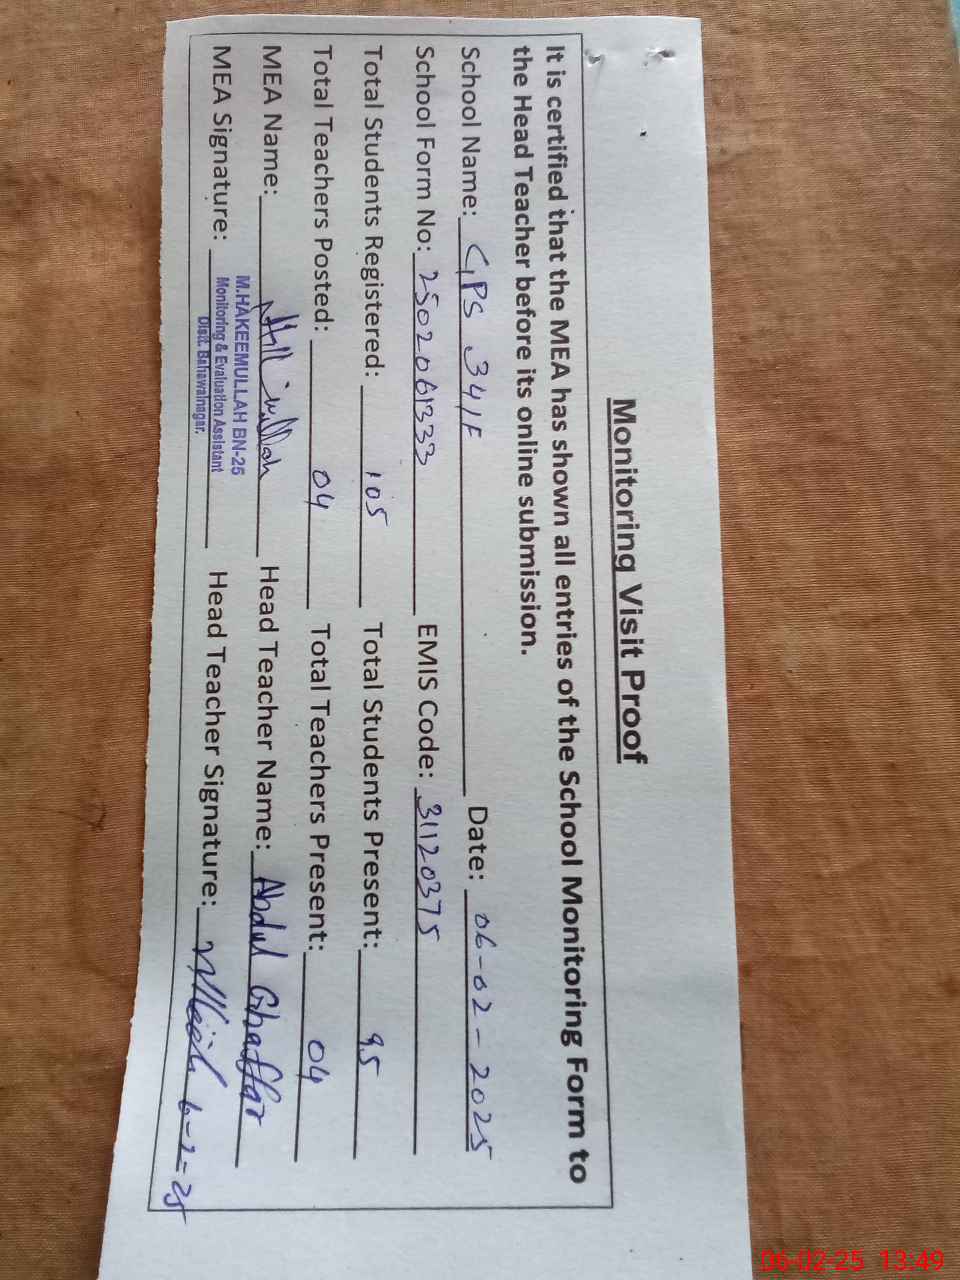 Monitoring Visit Proof
It is certified that the MEA has shown all entries of the School Monitoring Form to
the Head Teacher before its online submission.
School Name: GPS 341F Date: 06-02-2025
School Form No: 2502061333 EMIS Code: 31120375
Total Students Registered: 105 Total Students Present: 95
Total Teachers Posted: 04 Total Teachers Present: 04
MEA Name: Head Teacher Name: Abdul Ghaffar
M.HAKEEMULLAH BN-25
MEA Signature: Head Teacher Signature: 6-2=25
Monitoring & Evaluation Assistant
Distt. Bahawalnagar.
06-02-25 13:49